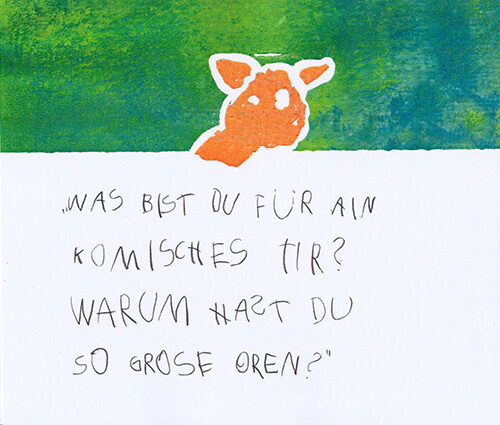 „WAS BIST DU FÜR AIN
KOMISCHES TIR?
WARUM HAST DU
SO GROSE OREN?"